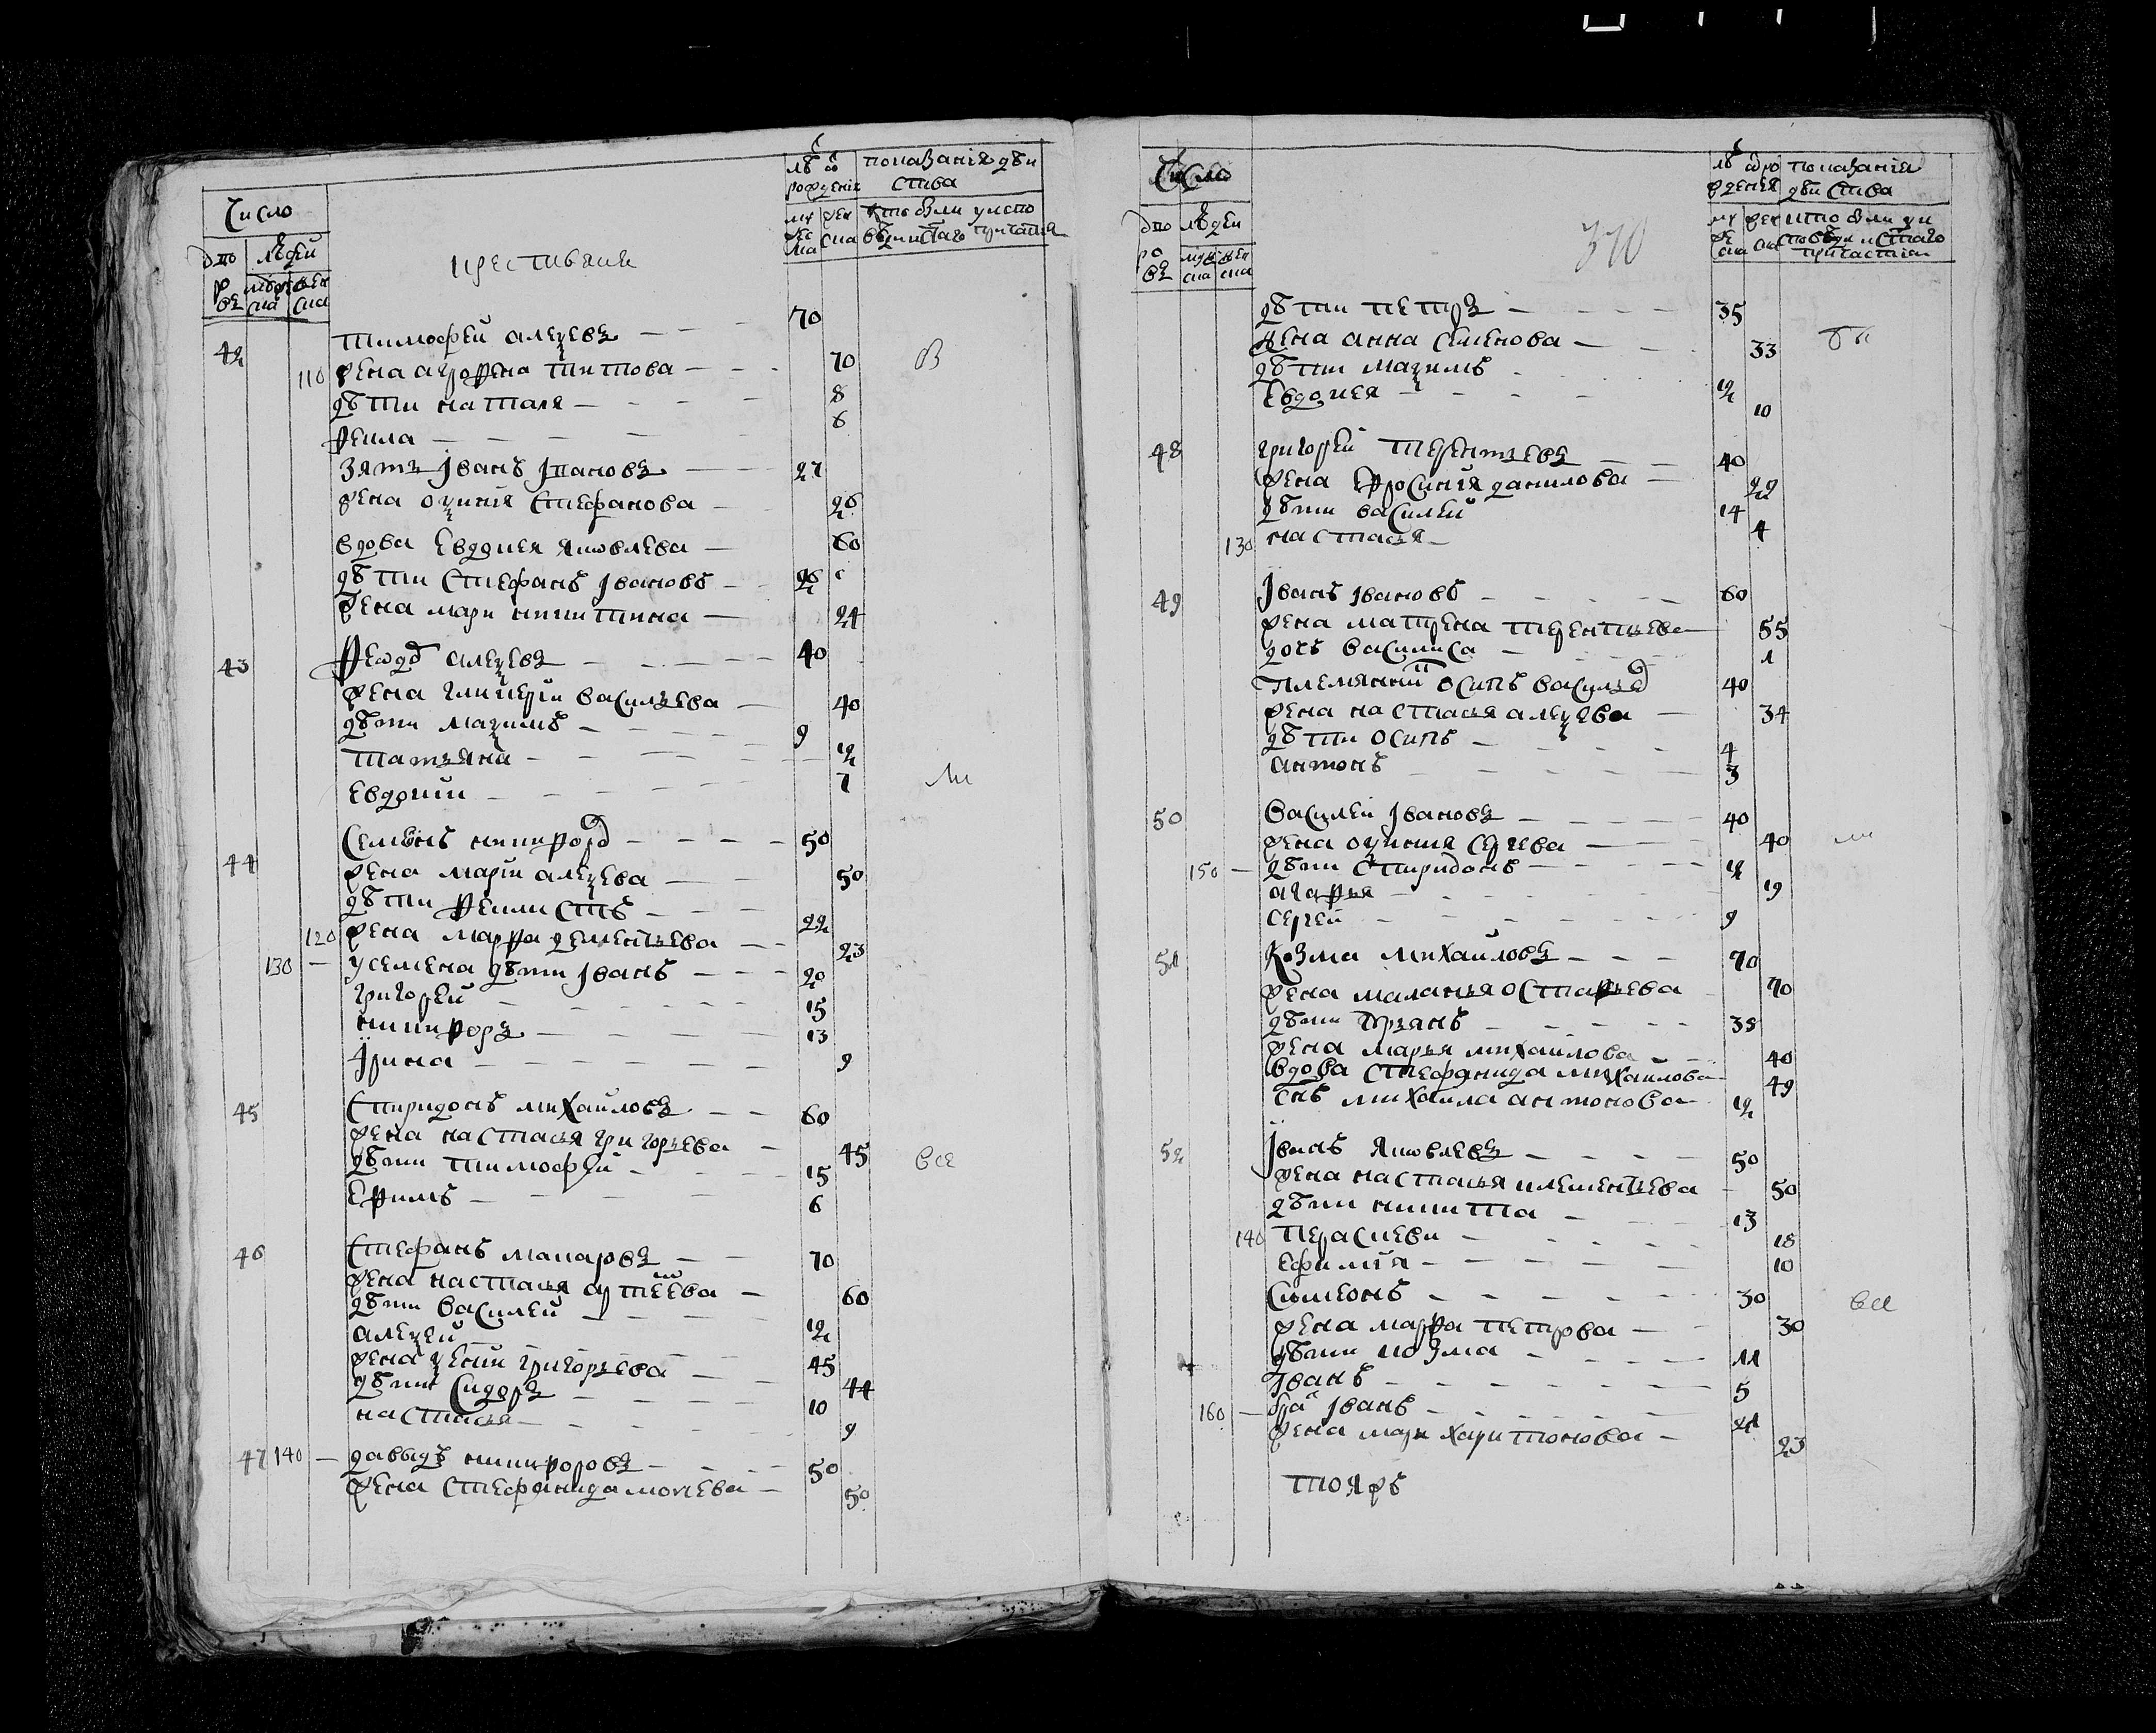 Число
дворовъ
людей
мужеска
женска
крестьяне
лѣт ѿ рожденія
мужеска
женска
показанія дѣиства
кто были у исповѣди и стаго причастія
42 Тимоѳей алеѯевъ — 70
110 жена агрофена Титова — 70 в
дѣти наталя — 8
Фекла — 6
зять Іванъ — 27
жена оѯинія Стефанова — 26
вдова Евдокея яковлева — 60
дѣти Стефанъ Івановъ — 26
жена мари никитина — 24
43 Ѳеѡдо алеѯевъ — 40
жена гликерїи васильева — 40
дѣти маѯимъ — 9
татьяна — 12
Евдокии — 7 ли
44 Семѣонъ никифоро — 50
жена марїи алеѯева — 50
дѣти Феликстъ — 22
120 жена марфа дементьева — 23
130 — у семена дѣти Іванъ — 20
григорей — 15
никифоръ — 13
Їрина — 9
45 Спиридонъ михаиловъ — 60
жена настася григорьева — 45 все
дѣти тимоѳей — 15
Ефимъ — 6
46 Стефанъ макаровъ — 70
жена настася — 60
дѣти василей — 12
алеѯей — 45
жена ѯении григорьева — 44
дѣти Сидоръ — 10
настася — 9
47 140 — давыдъ никифоровъ — 50
жена Стефанида — 50
Число
дворовъ
людей
мужеска
женска
370
лѣт ѿ рожденія
мужеска
женска
показаніи дѣиства
кто были у исповѣди и стаго причастіи
дѣти петръ — 35
жена анна Семенова — 33
дѣти маѯимъ — 12
Евдокея — 10
48 григорей терентьевъ — 40
жена Ефросинїя данилова — 22
дѣти василей 14
130 настася — 4
49 Їванъ Івановъ — 60
жена матрена терентьева — 55
дочь василиса — 1
племянни осипъ василье 40
жена настася алеѯева — 34
дѣти осипъ — 4
антонъ — 3
50 василей Івановъ — 40
жена оѯиния Сергева — 40 ли
150 — дѣти Спиридонъ — 12
агафья — 19
сергей — 9
51 козма михайловъ — 70
жена маланья остафьева — 70
дѣти — 38
жена марья михаилова — 40
вдова Стефанида михаилова — 49
снъ михаила антонова — 12
52 Їванъ яковлевъ — 50
жена настася клементьева — 50
дѣти никита — 13
140 Параскеви — 18
ефимїя — 10
Симеонъ — 30 все
жена марфа петрова — 30
дѣти козма — 11
Іванъ — 5
160 — бра Іванъ — 21
жена мари харитонова — 23